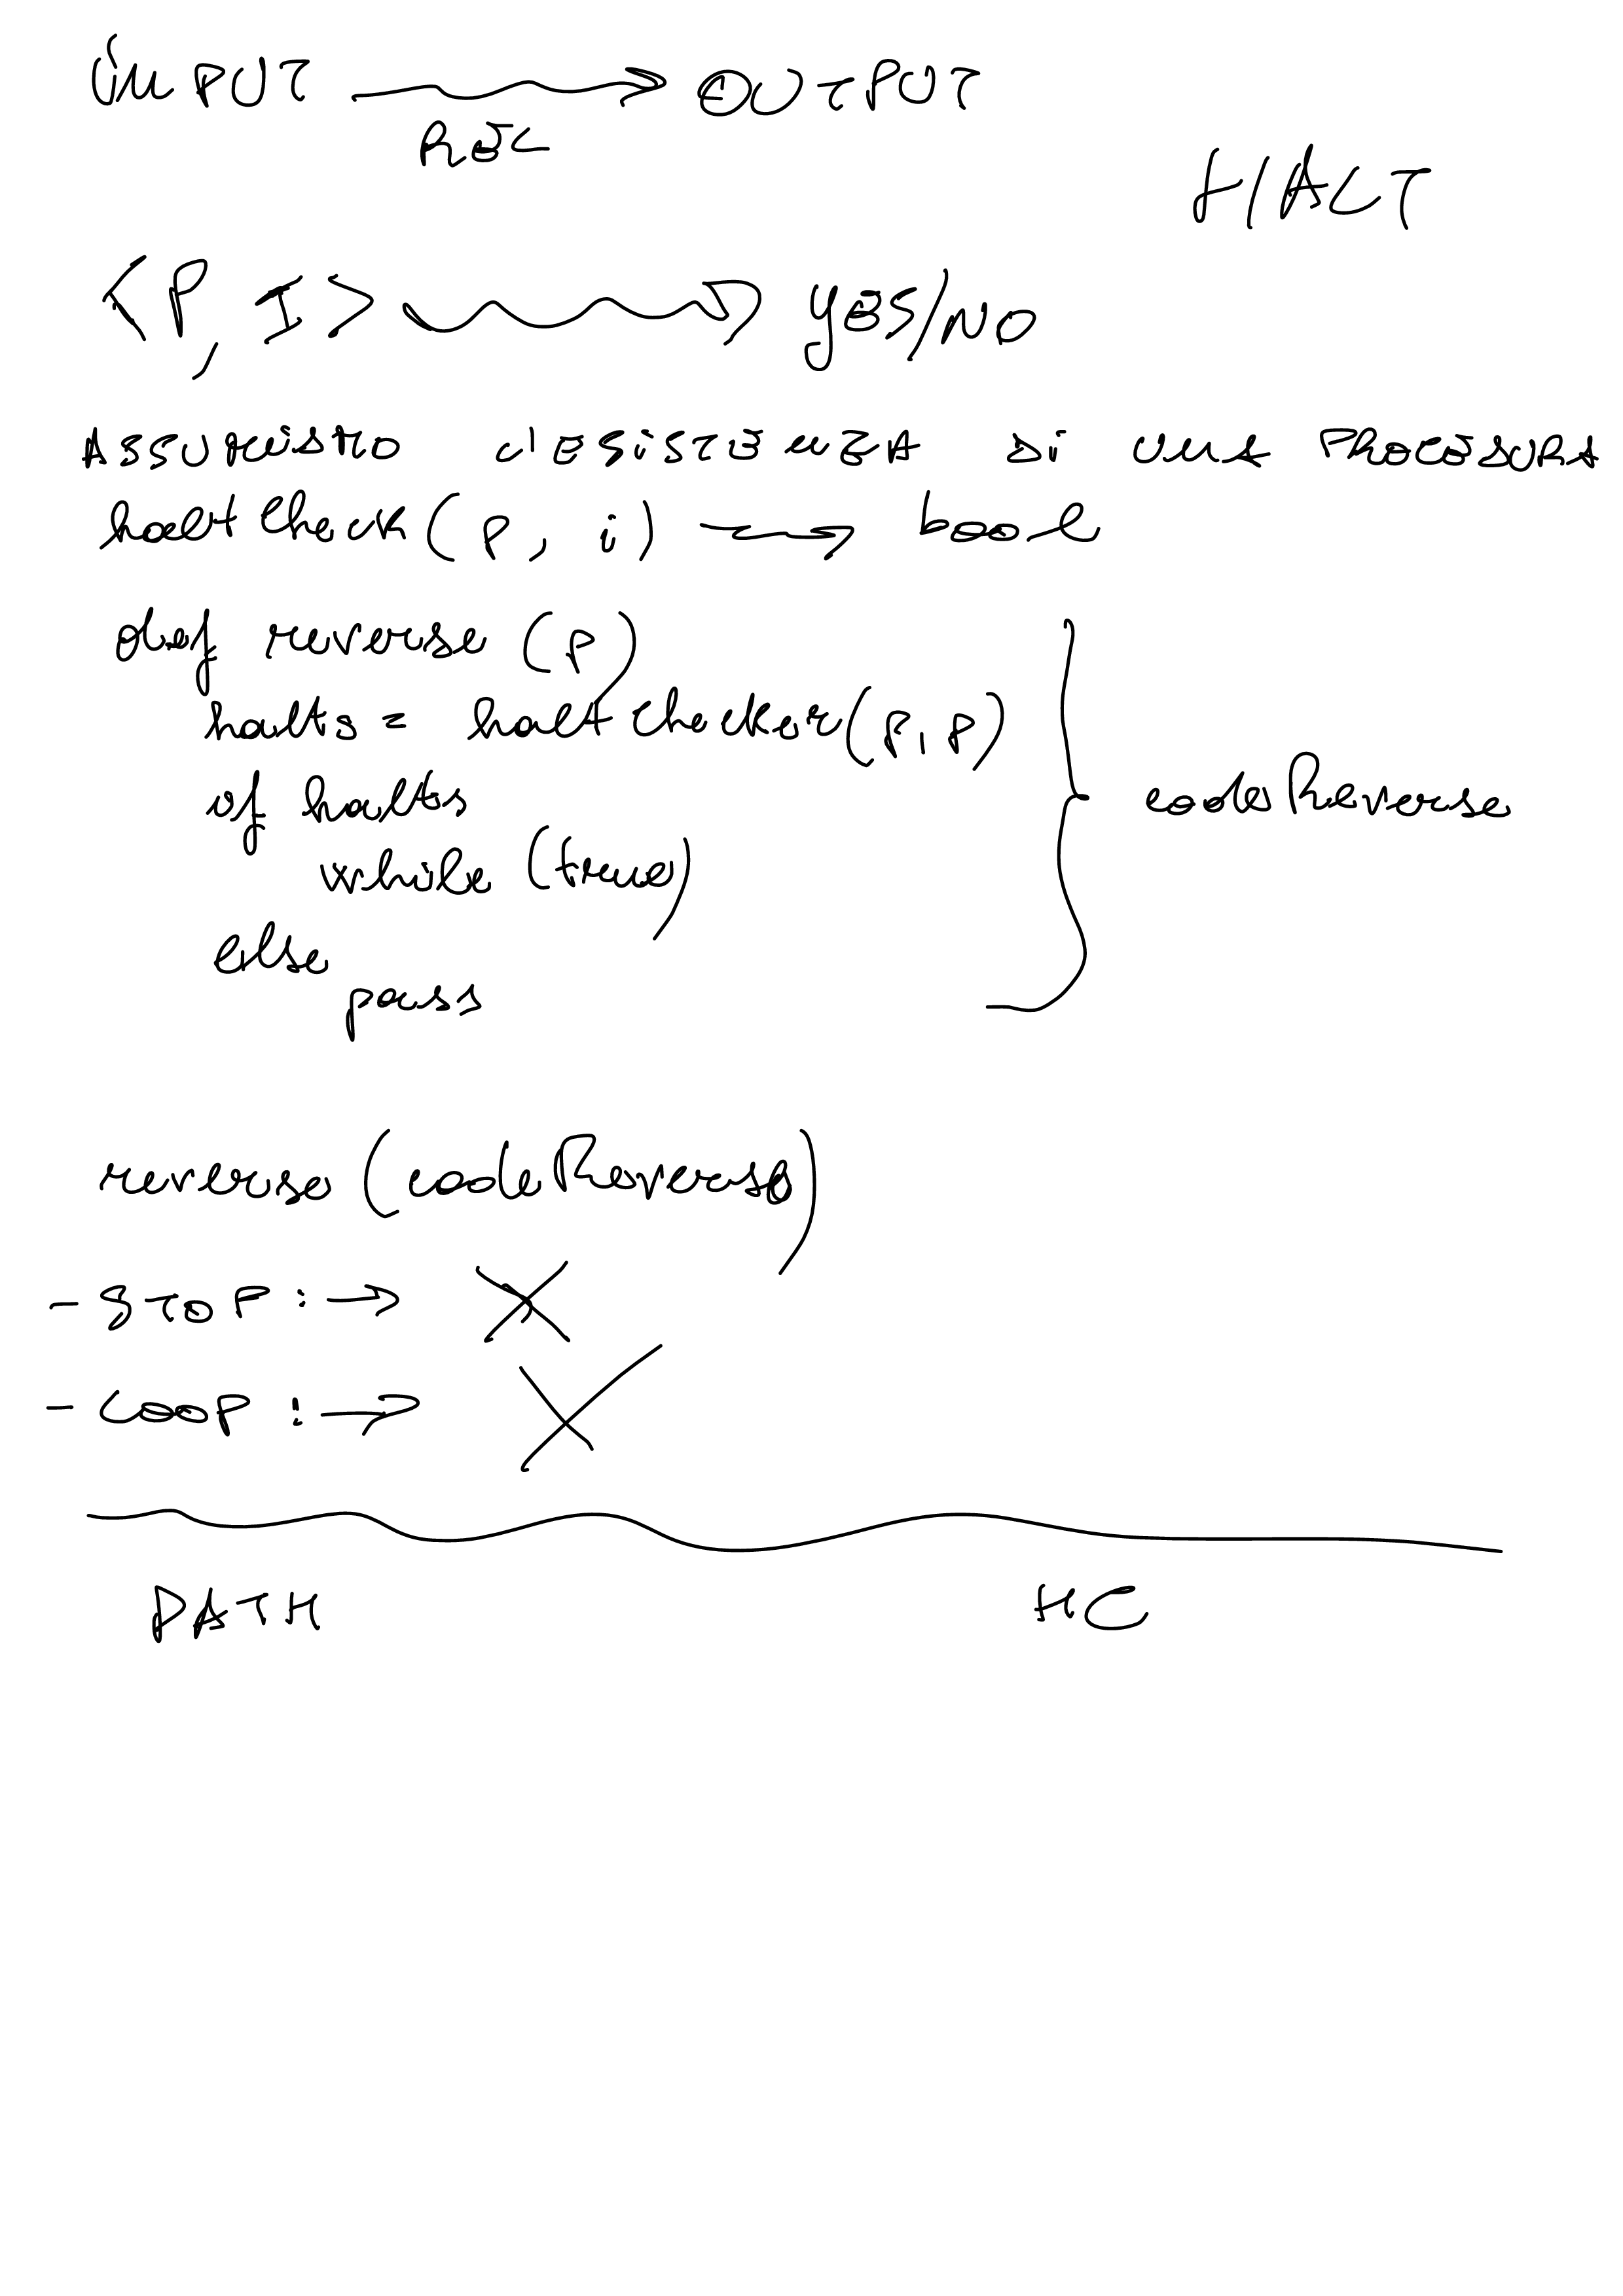 INPUT → OUTPUT
REL
HALT
<P, I> → YES/NO
ASSUMIAMO L'ESISTENZA DI UNA PROCEDURA
haltCheck(P, i) → bool
def reverse (P)
halts = haltChecker(P, P)
if halts
while (true)
else
pass
codeReverse
reverse (codeReverse)
- STOP : →
- LOOP : →
PATH HC